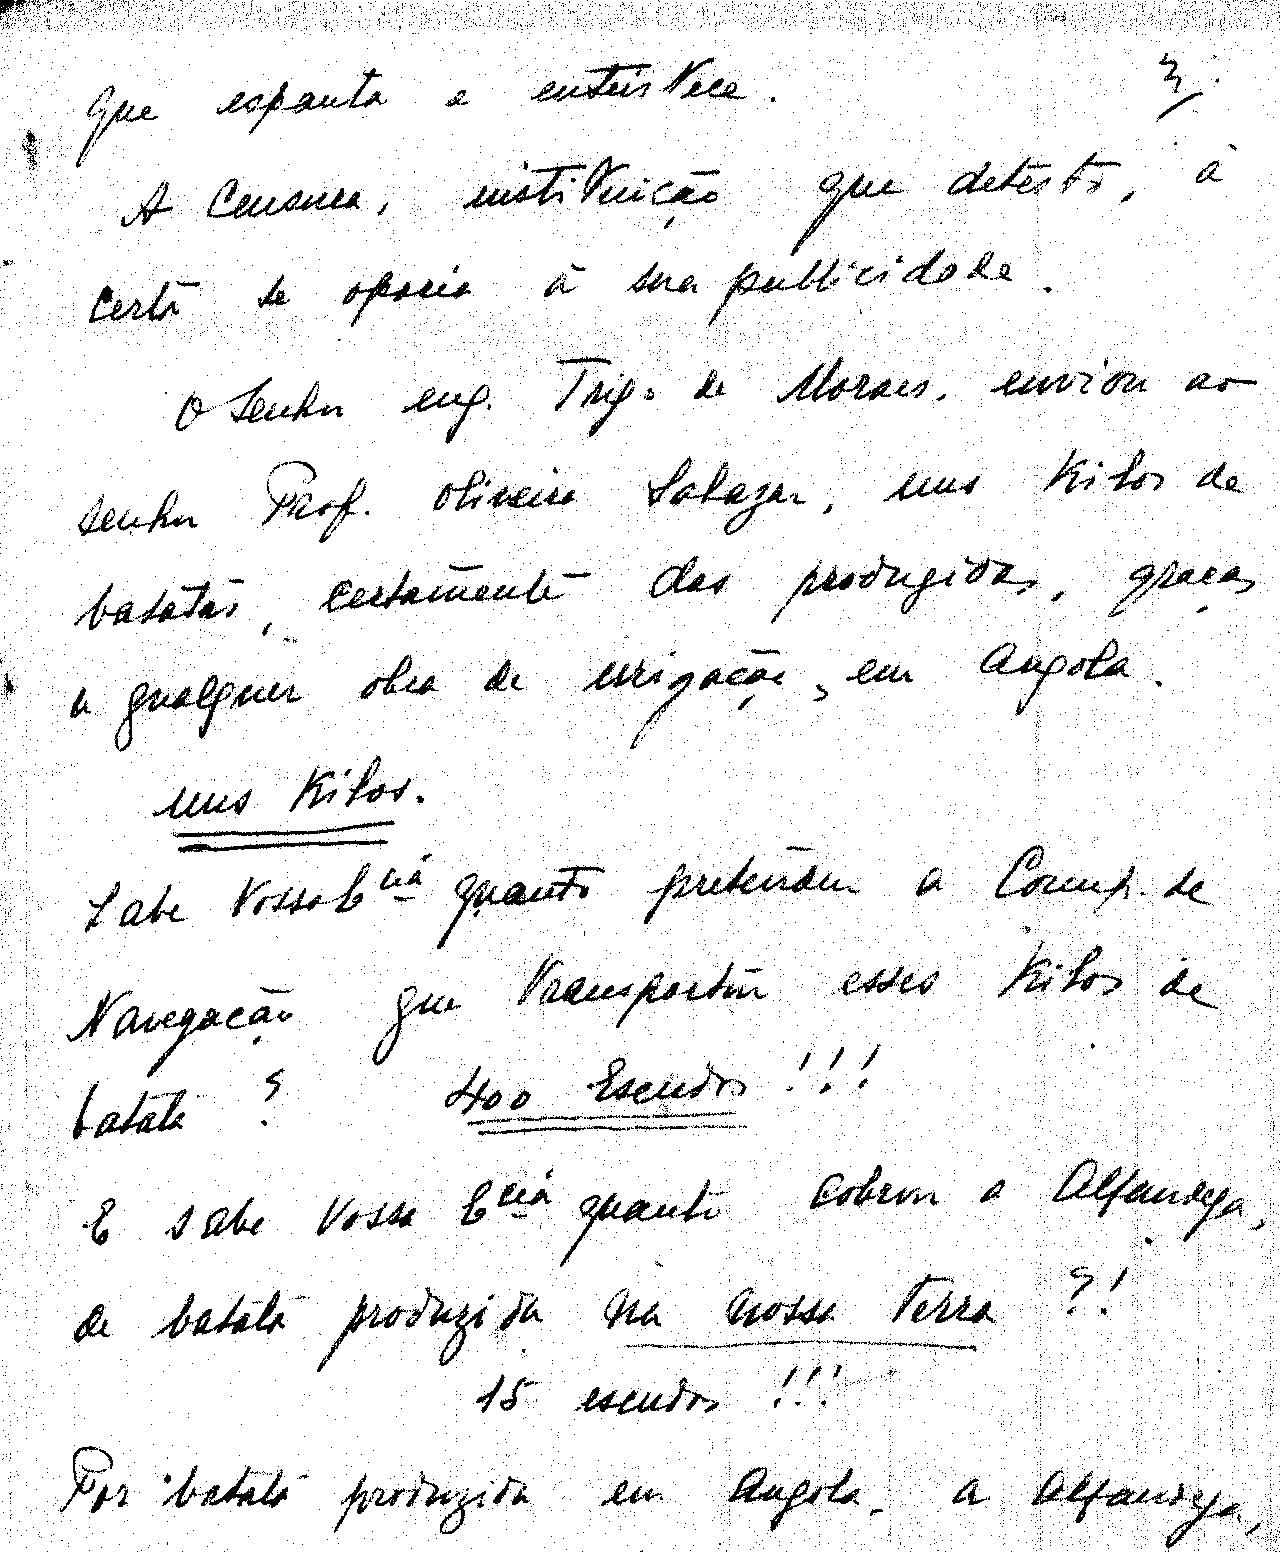 3.
que espanta e entristece.
A Censura, instituição que detesto, à
certa se oporia à sua publicidade.
O Senhor eng. Trigo de Moraes, enviou ao
senhor Prof. Oliveira Salazar, uns Kilos de
batatas, certamente das produzidas, graças
a qualquer obra de irrigação, em Angola.
uns Kilos.
Sabe Vossa Ecia quanto pretendeu a Comp. de
Navegação que transportou esses Kilos de
batata? 400 Escudos!!!
E sabe Vossa Ecia quanto cobrou a Alfandega,
de batata produzida na nossa Terra?!
15 escudos!!!
Por batata produzida em Angola, a Alfandega,